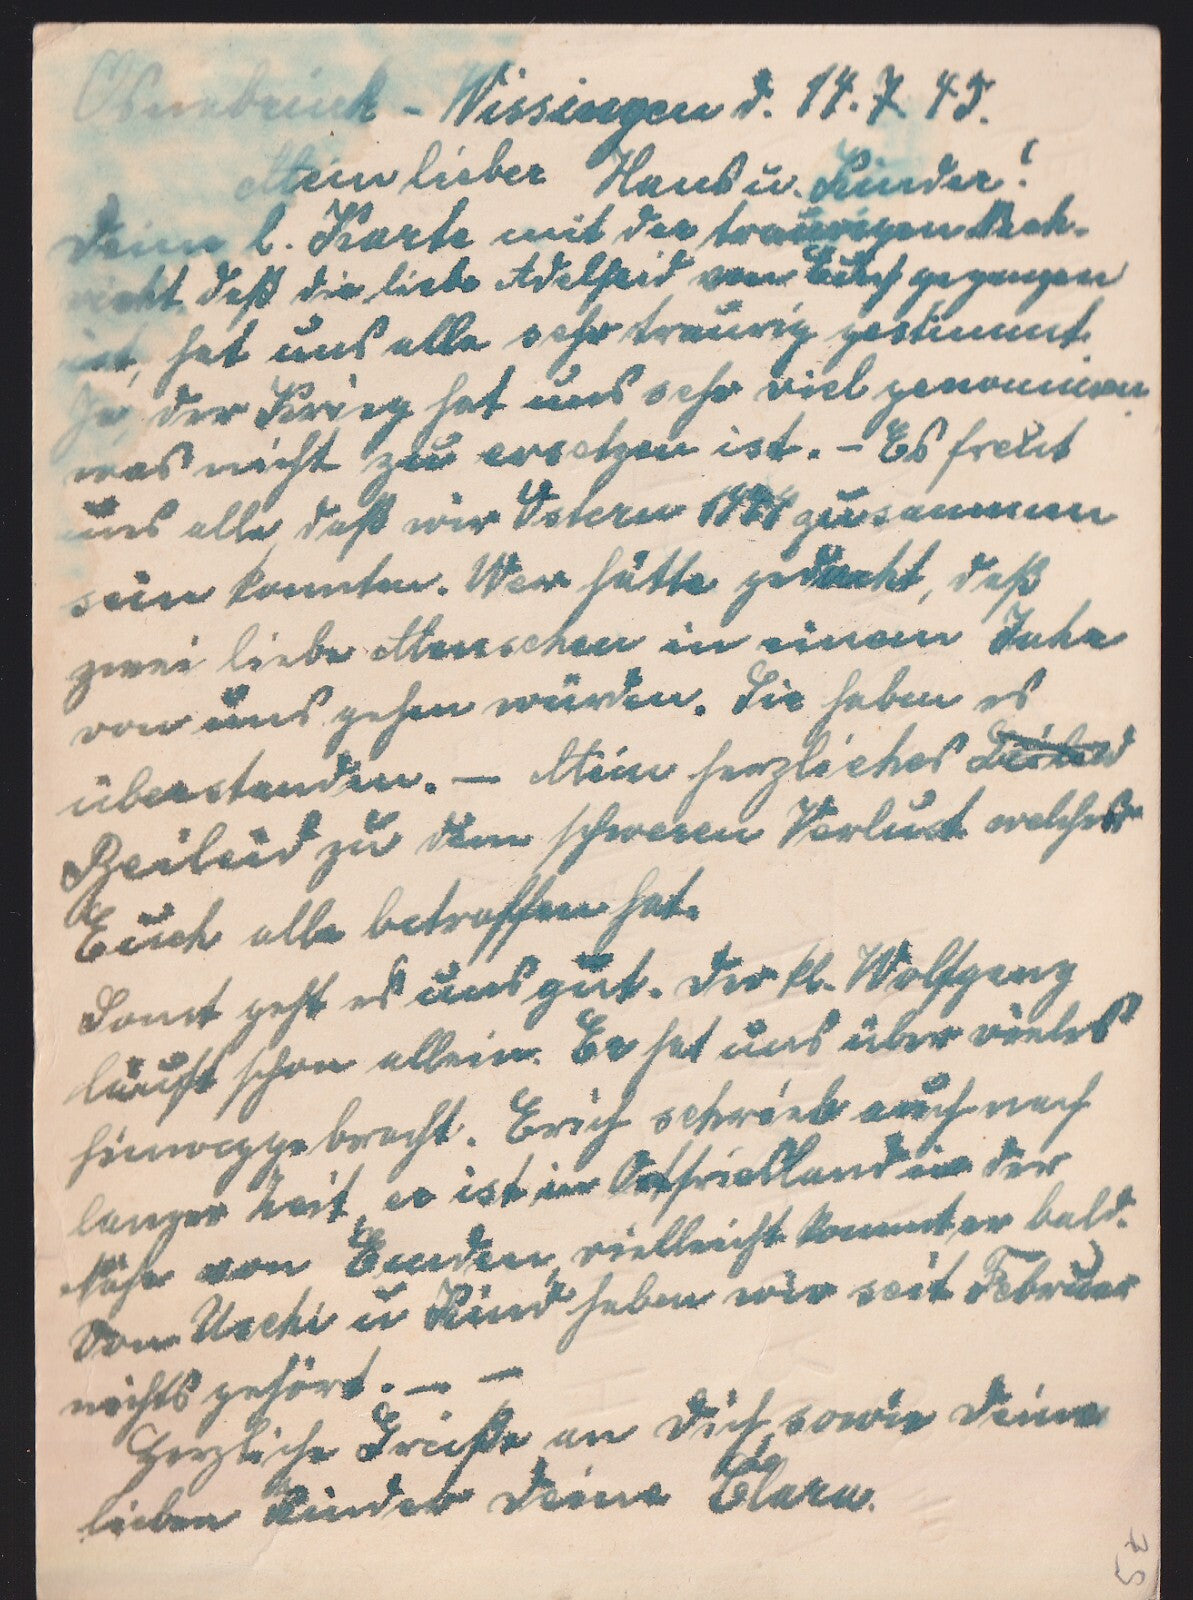 Osnabrück - Wissingen d. 14.7.45.
Mein lieber Hans u. Kinder!
Deine l. Karte mit der traurigen Nach-
richt, daß die liebe Adelheid von Euch gegangen
ist, hat uns alle sehr traurig gestimmt.
Ja, der Krieg hat uns sehr viel genommen
was nicht zu ersetzen ist. - Es freut
uns alle, daß wir Ostern 1944 zusammen
sein konnten. Wer hätte gedacht, daß
zwei liebe Menschen in einem Jahr
von uns gehen würden. Sie haben es
überstanden. — Mein herzliches
Beileid zu dem schweren Verlust welcher
Euch alle betroffen hat.
Sonst geht es uns gut. Der kl. Wolfgang
läuft schon allein. Er hat uns über vieles
hinweggebracht. Erich schrieb auch nach
langer Zeit, er ist in Ostfriesland in der
Nähe von Emden, vielleicht kommt er bald.
Von Uschi u Kind haben wir seit Februar
nichts gehört. — —
Herzliche Grüße an Dich, sowie Deine
lieben Kinder Deine Clara.
52